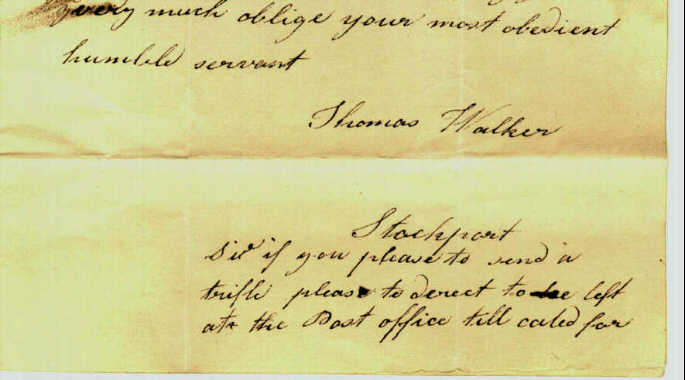 very much oblige your most obedient
humble servant
Thomas Walker
Stockport
Sir if you please to send a
trifle please to derect to be left
at the Post office till caled for